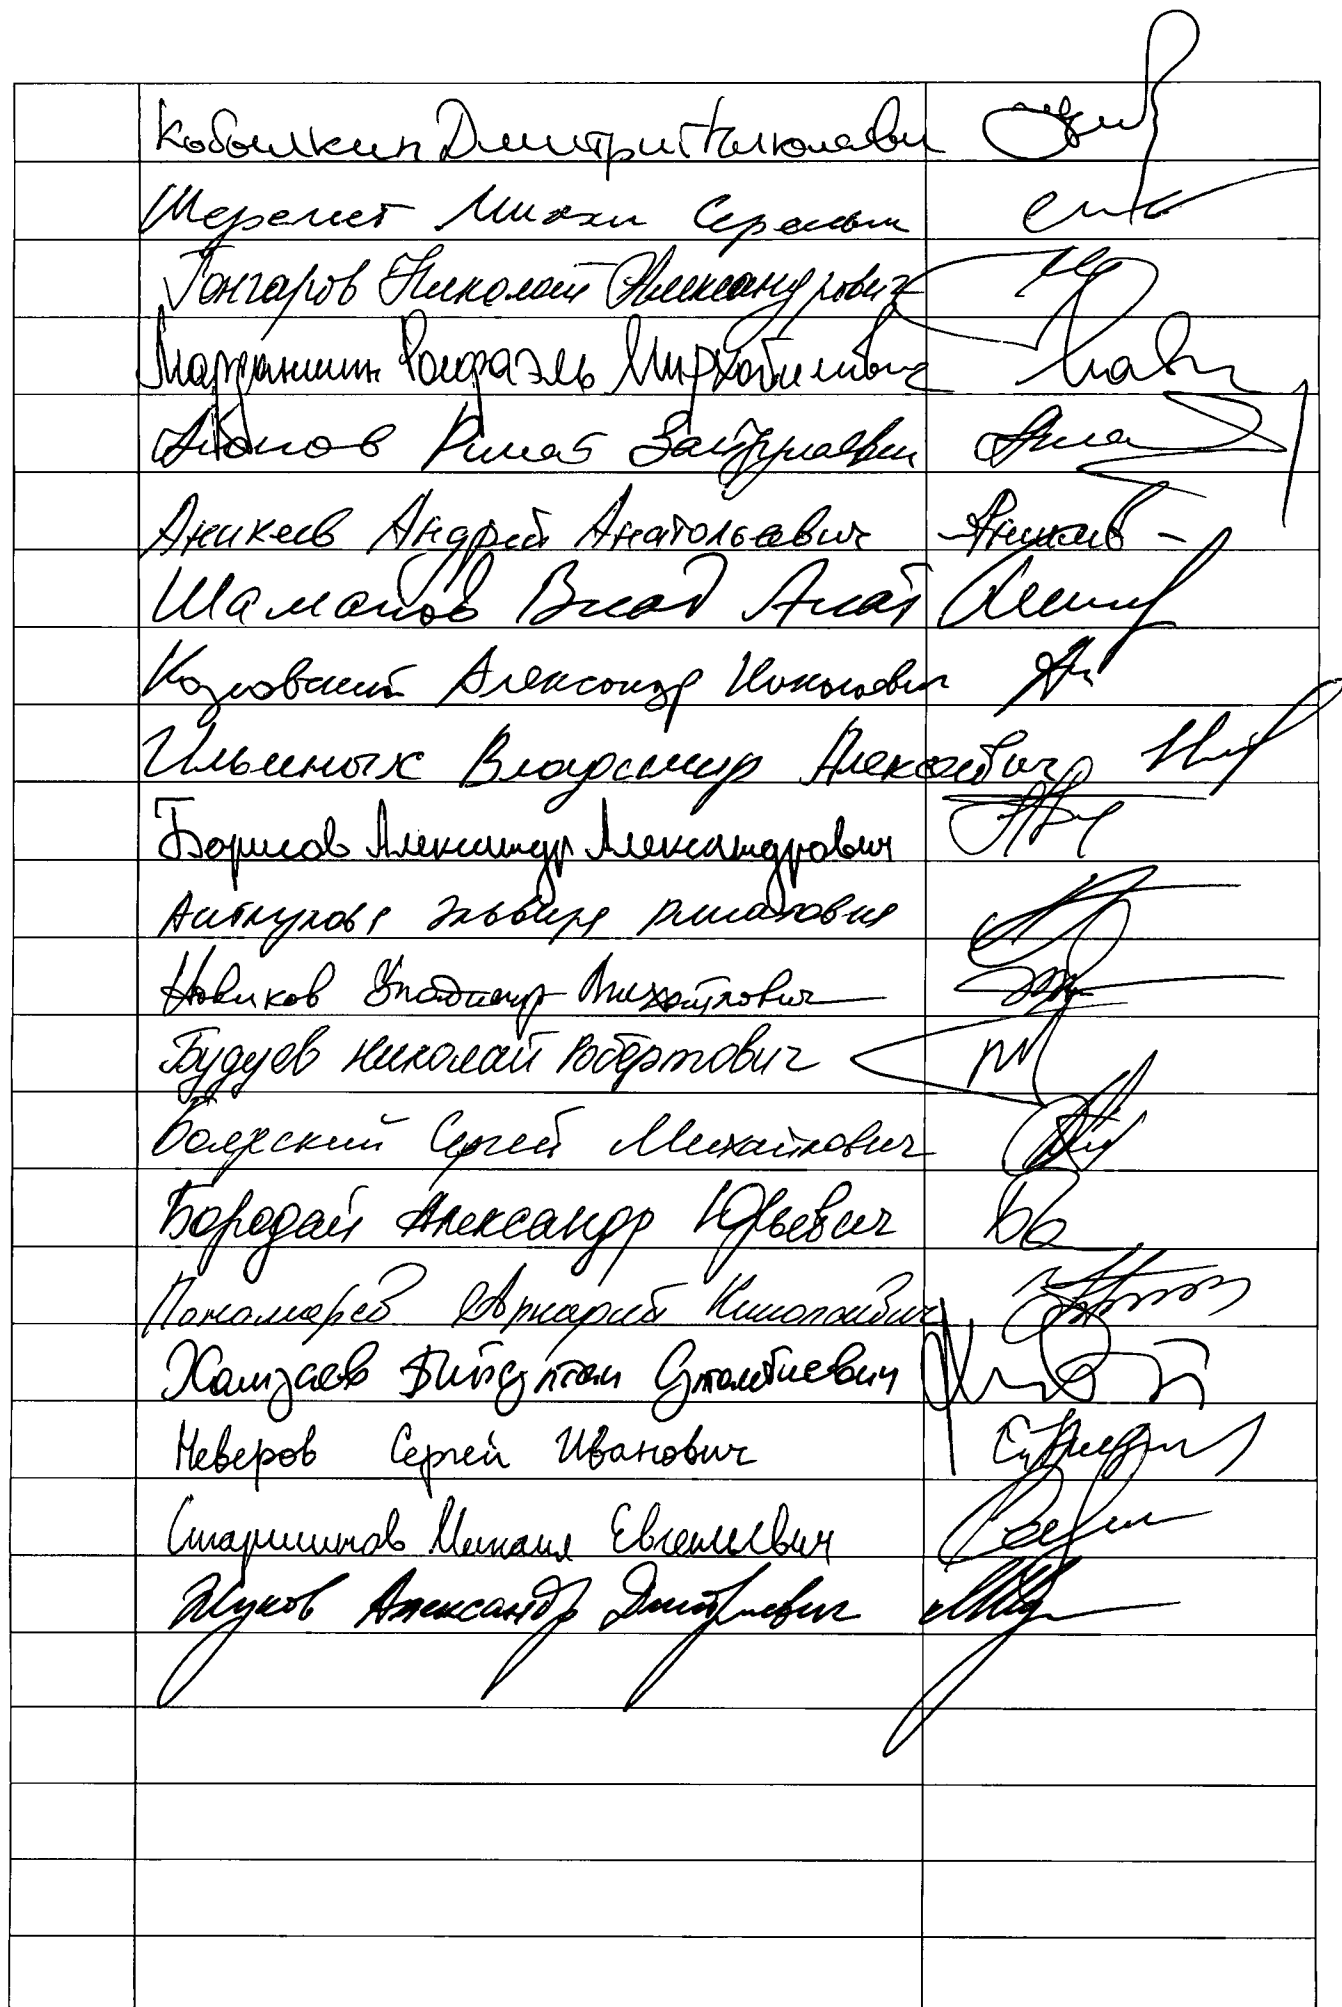 Кобылкин Дмитрий Николаевич
Шеремет Михаил Сергеевич
Гончаров Николай Александрович
Марданшин Рафаэль Мирхатимович
Аюпов Ринат Зайдулаевич
Аникеев Андрей Анатольевич Аникеев
Шаманов Влад Анат
Козловский Александр Николаевич
Ильиных Владимир Алексеевич
Борисов Александр Александрович
Аиткулова Эльвира Ринатовна
Новиков Владимир Михайлович
Будуев Николай Робертович
Боярский Сергей Михайлович
Бородай Александр Юрьевич
Пономарёв Аркадий Николаевич
Хамзаев Бийсултан Султанбиевич
Неверов Сергей Иванович
Старшинов Михаил Евгеньевич
Жуков Александр Дмитриевич